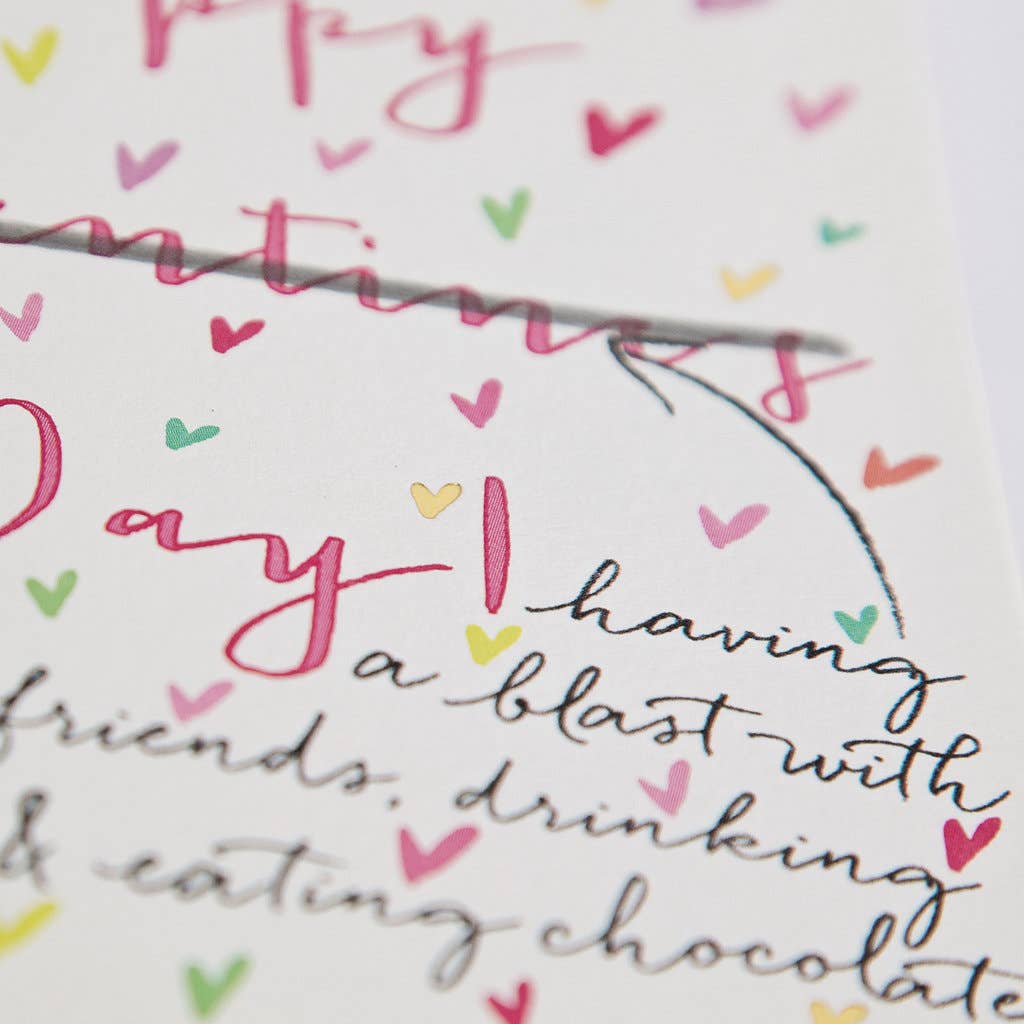 ppy
ntines
Day! having
a blast with
friends, drinking
& eating chocolate